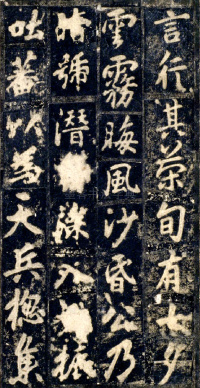 言行其策旬有七夕
雲霧晦風沙昏公乃
時號潛深入振
吐蕃以為天兵摠集